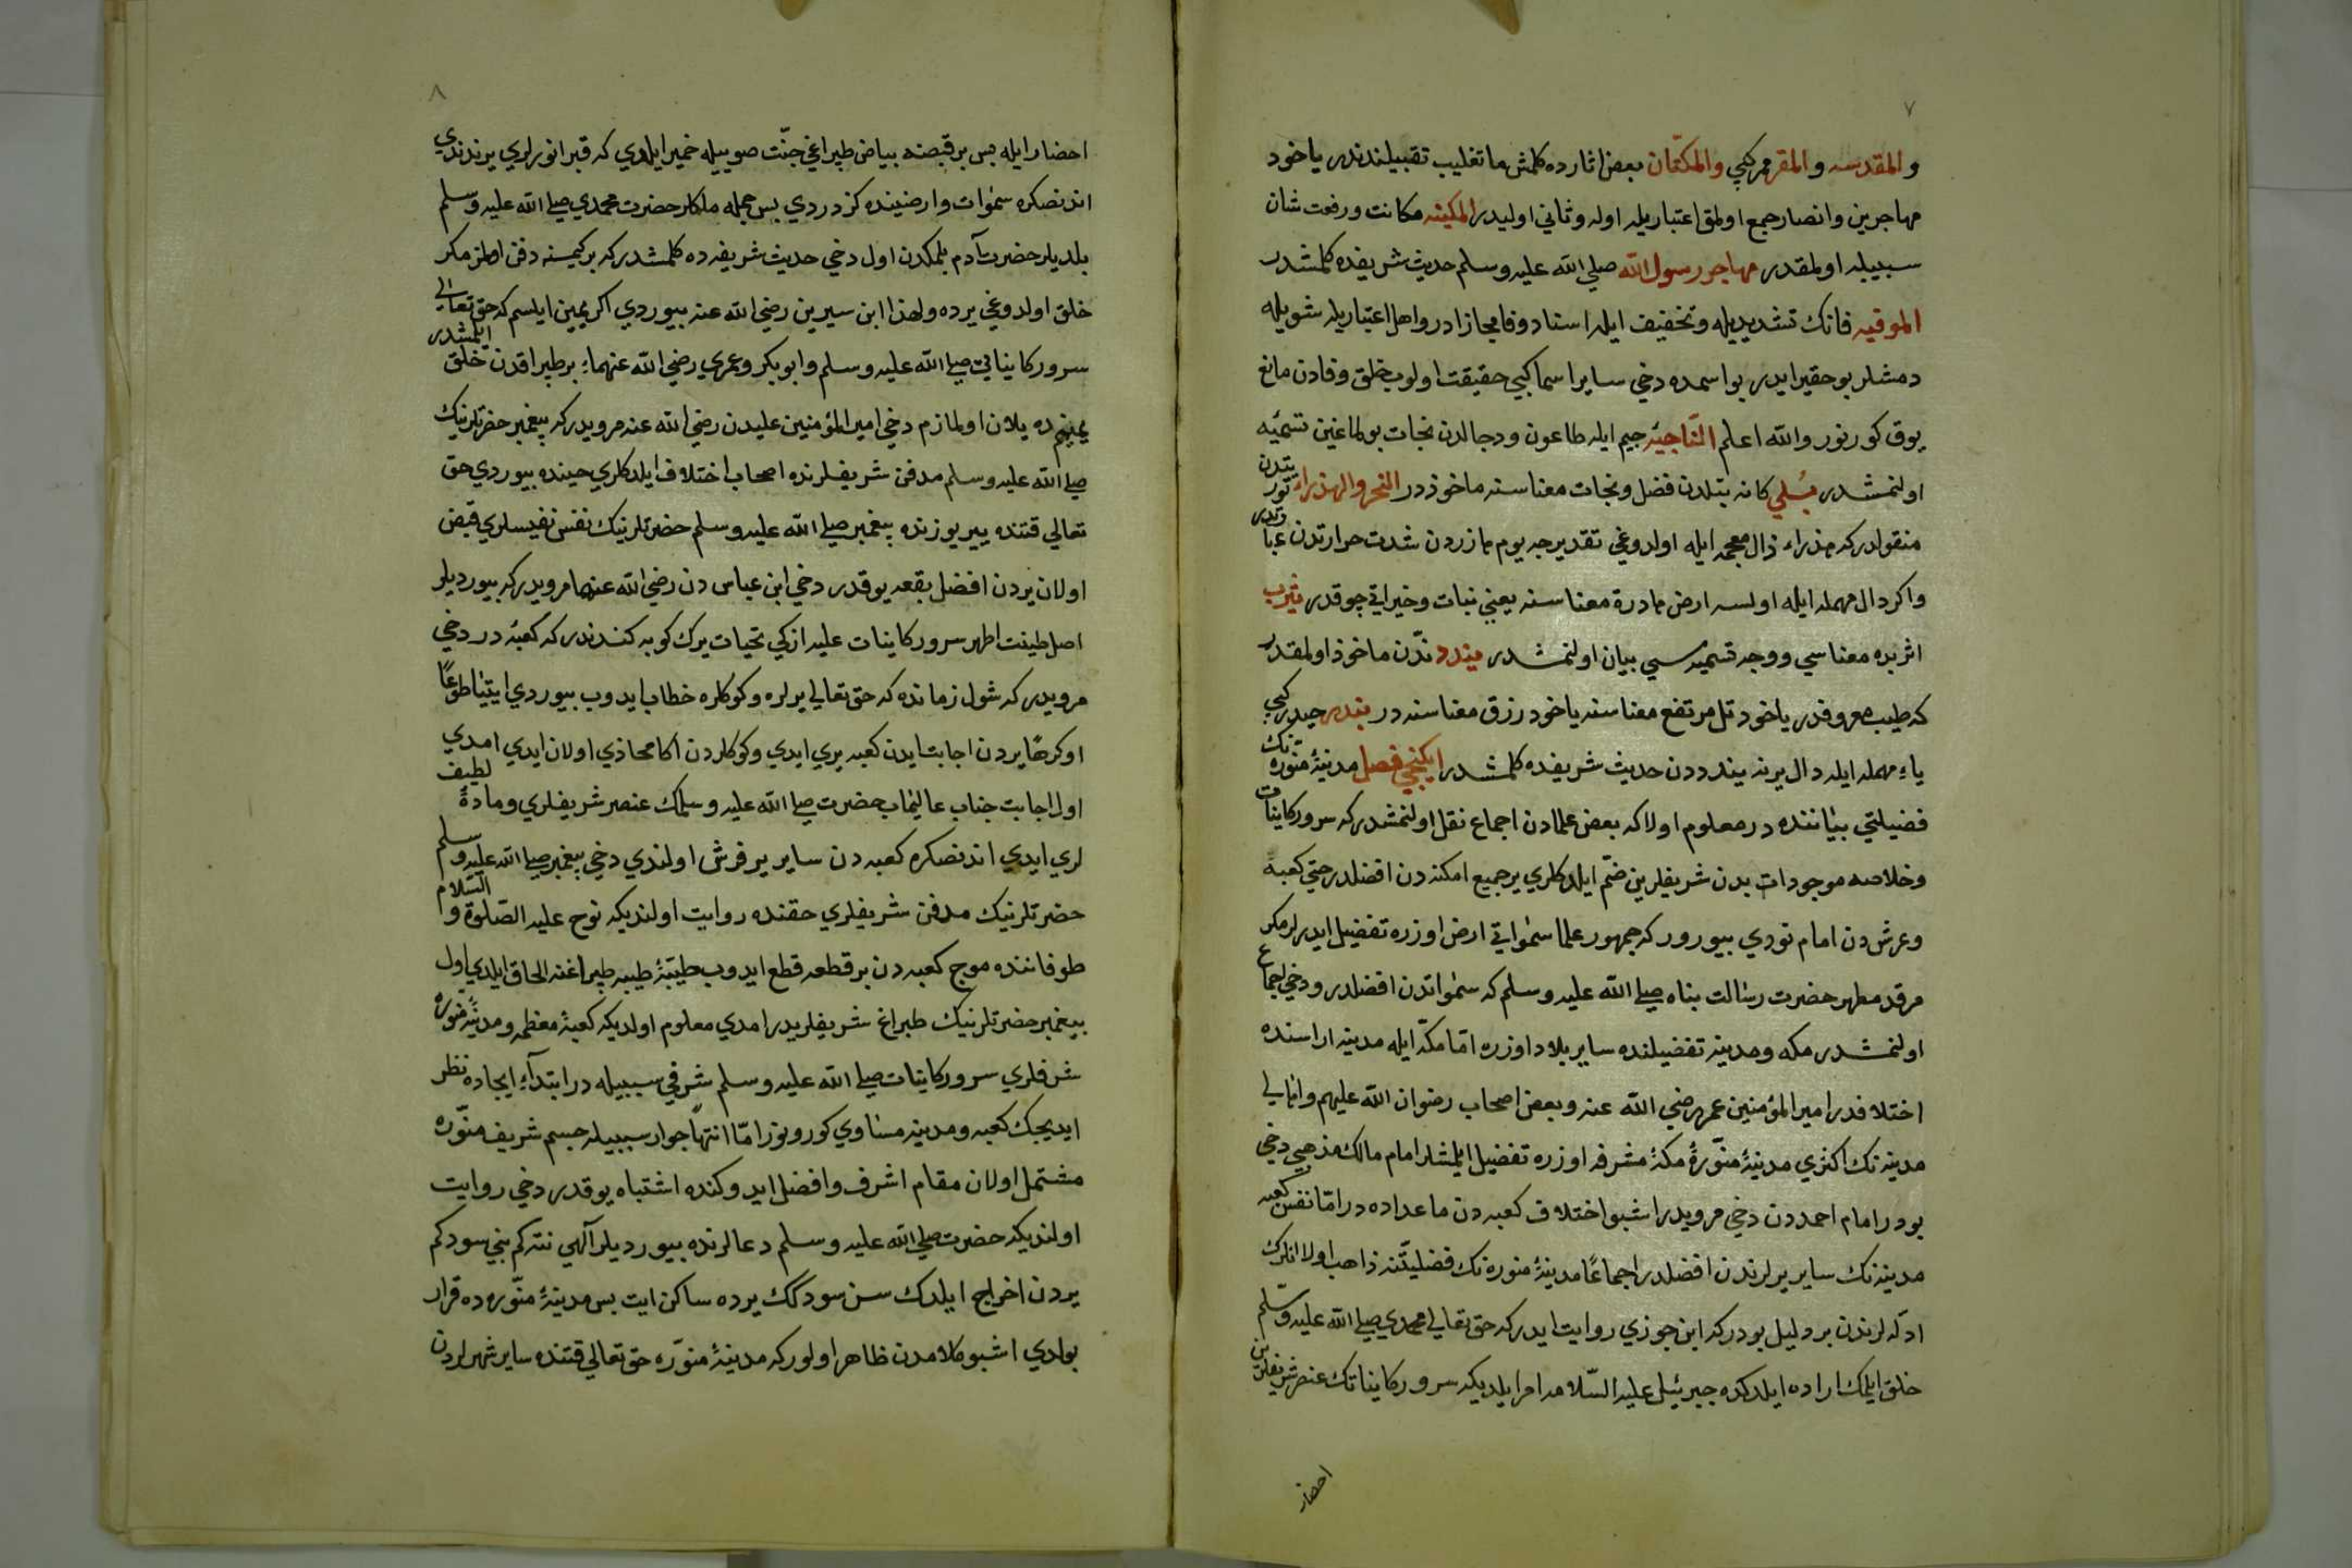 ٧
والمقدسه والمقر مركبي والمكتان بعض اثارده كلمش ما تغليب تقبيلندندر ياخود
مهاجرين وانصار جمع اولمق اعتباريله اوله وثاني اوليدر المكينه مكانت ورفعت شان
سببيله اولمقدر مهاجر رسول الله صلي الله عليه وسلم حديث شريفده كلمشدر
الموفيه فانك تشديديله وتخفيف ايله اسناد وفا مجازا در واهل اعتباريله شويله
دمشلر بو حقير ايدر بو اسمده دخي ساير اسما كبي حقيقت اولوب خلق وفادن مانع
يوق كورنور والله اعلم الناجيه جيم ايله طاعون ودجالدن نجات بولماغين تسميه
اولنمشدر نبلي كانه نبتلدن فضل ونجات معناسنه ماخوذدر النحر والهذراء يتدن نور
منقولدركه هذراء ذال معجمه ايله اولدوغي تقديرجه يوم هاذردن شدت حرارتدن عبارتدر
واكر دال مهمله ايله اولسه ارض هادرة معناسنه يعني نبات وخيراتي چوقدر يثرب
اثربده معناسي ووجه تسميه سي بيان اولنمشدر يندد ندّن ماخوذ اولمقدر
كه طيب معروفدر ياخود تل مرتفع معناسنه ياخود رزق معناسنه در يندر حيدر كبي
ياء مهمله ايله دال يرنه يندددن حديث شريفده كلمشدر ايكنجي فصل مدينۀ منوره نك
فضيلتي بياننده در معلوم اولاكه بعض علمادن اجماع نقل اولنمشدركه سرور كاينات
وخلاصه موجودات بدن شريفلرين ضمّ ايلدكلري ير جميع امكنه دن افضلدر حتي كعبه
وعرش دن امام نووي بيورور كه جمهور علما سمواتي ارض اوزره تفضيل ايدرلر مكر
مرقد مطهر حضرت رسالت پناه صلي الله عليه وسلم كه سمواتدن افضلدر ودخي اجماع
اولنمشدر مكه ومدينه تفضيلنده ساير بلاد اوزره امّا مكّه ايله مدينه اراسنده
اختلافدر امير المؤمنين عمر رضي الله عنه وبعض اصحاب رضوان الله عليهم واهالي
مدينه نك اكثري مدينۀ منوّرۀ مكۀ مشرفه اوزره تفضيل ايلمشلر امام مالك مذهبي دخي
بودر امام احمددن دخي مرويدر اشبو اختلاف كعبه دن ماعداده در امّا نفس كعبه
مدينه نك ساير يرلرندن افضلدر اجماعًا مدينۀ منوره نك فضليّتنه ذاهب اولانلرك
ادله لرندن بر دليل بودركه ابن جوزي روايت ايدركه حق تعالي محمدي صلي الله عليه وسلم
خلق ايلمك اراده ايلدكده جبرئيل عليه السّلامه امر ايلديكه سرور كايناتك عنصر شريفلرين
احضار
٨
احضار ايله پس بر قبصنه بياض طپراغي جنّت صوييله خمير ايلدي كه قبر انورلري يرندندي
اندنصكره سموات وارضينده كزدردي پس جمله ملكلر حضرت محمدي صلي الله عليه وسلم
بلديلر حضرت آدم بلمكدن اول دخي حديث شريفده كلمشدركه بر كيمسنه دفن اولنمز مكر
خلق اولدوغي يرده ولهذا ابن سيرين رضي الله عنه بيوردي اكر يمين ايلسم كه حق تعالي
سرور كايناتي صلي الله عليه وسلم وابوبكر وعمري رضي الله عنهما بر طپراقدن خلق ايلمشدر
يمينمده يلان اولمازم دخي امير المؤمنين عليدن رضي الله عنه مرويدركه پيغمبر حضرتلرينك
صلي الله عليه وسلم مدفن شريفلرنده اصحاب اختلاف ايلدكلري حينده بيوردي حق
تعالي قتنده يير يوزنده پيغمبر صلي الله عليه وسلم حضرتلرينك نفس نفيسلري قبض
اولان يردن افضل بقعه يوقدر دخي ابن عباس دن رضي الله عنهما مرويدركه بيورديلر
اصل طينت اطهر سرور كاينات عليه ازكي تحيات يرك كوبه كندندر كه كعبه در دخي
مرويدركه شول زمانده كه حق تعالي يرلره وكوكلره خطاب ايدوب بيوردي ايتيا طوعًا
اوكرهًا يردن اجابت ايدن كعبه يري ايدي وكوكلردن اكا محاذي اولان ايدي امدي
اول اجابت جناب عاليمآب حضرت صلي الله عليه وسلمك عنصر شريفلري ومادۀ لطيف
لري ايدي اندنصكره كعبه دن ساير ير فرش اولندي دخي پيغمبر صلي الله عليه وسلم
حضرتلرينك مدفن شريفلري حقنده روايت اولنديكه نوح عليه الصّلوة والسّلام
طوفاننده موج كعبه دن بر قطعه قطع ايدوب طيبۀ طيبه طپراغنه الحاق ايلدي اول
پيغمبر حضرتلرينك طپراغ شريفلريدر امدي معلوم اولديكه كعبۀ معظمه ومدينۀ منوره
شرفلري سرور كاينات صلي الله عليه وسلم شرفي سببيله در ابتداء ايجاده نظر
ايديجك كعبه ومدينه مساوي كورونور امّا انتهاً جوار سببيله جسم شريف منوّره
مشتمل اولان مقام اشرف وافضل ايدوكنده اشتباه يوقدر دخي روايت
اولنديكه حضرت صلي الله عليه وسلم دعالرنده بيورديلر آلهي نته كم بني سودكم
يردن اخراج ايلدك سن سودكك يرده ساكن ايت پس مدينۀ منوّره ده قرار
بولدي اشبو كلامدن ظاهر اولور كه مدينۀ منوّره حق تعالي قتنده ساير شهرلردن